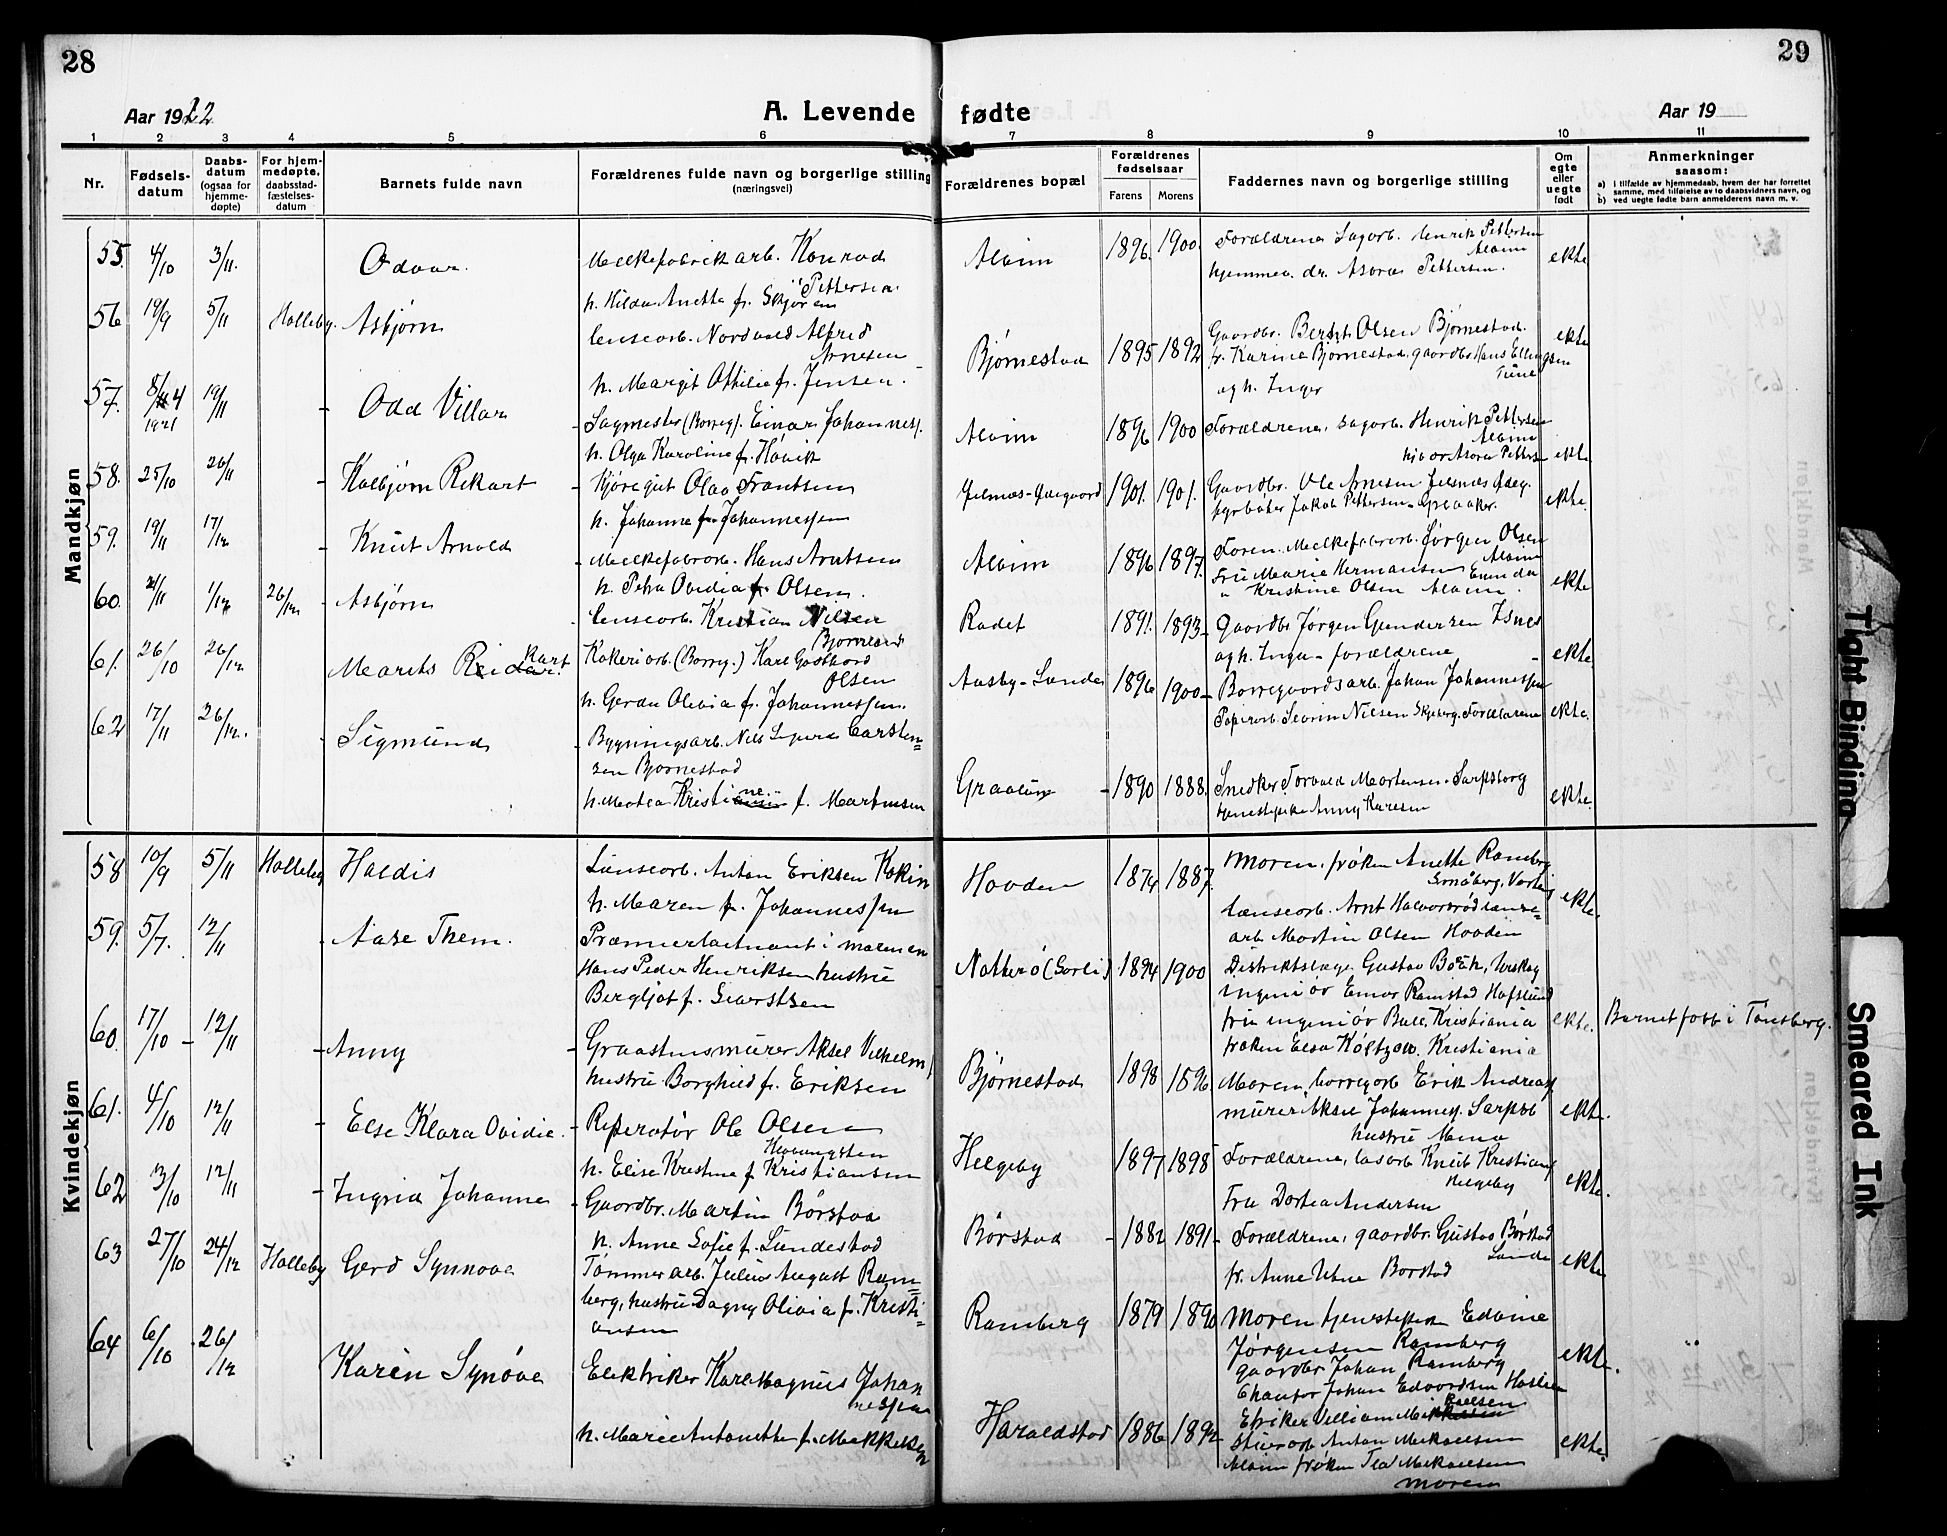 28
29
Aar 1922
A. Levende fødte
Aar 19
1 2 3 4 5 6 7 8 9 10 11
Nr.
Fødsels-
datum
Daabs-
datum
(ogsaa for
hjemme-
døpte)
For hjem-
medøpte,
daabsstad-
fæstelses-
datum
Barnets fulde navn
Forældrenes fulde navn og borgerlige stilling
(næringsvei)
Forældrenes bopæl
Forældrenes
fødselsaar
Farens Morens
Faddernes navn og borgerlige stilling
Om
egte
eller
uegte
født
Anmerkninger
saasom:
a) i tilfælde av hjemmedaab, hvem der har forrettet
samme, med tilføielse av to daabsvidners navn, og
b) ved uegte fødte barn anmelderens navn m. v.
Mandkjøn
55. 4/10 3/11. Odvar. Melkefabrikarb. Konrad
Pettersen.
h. Hilda Anetta f. Skjøren
Alvim 1896. 1900. Forældrene Sagarb. Henrik Pettersen
Alvim
ekte
56 19/9 5/11 Holleby. Asbjørn
Lenseorb. Nordvald Alfred
Arnesen
h. Margit Othilie f. Jensen.
Bjørnestad 1895 1892 Gaardbr. Berht Olsen Bjørnestad.
fr. Karine Bjørnestad, gaardbr Hans Ellingsen
Tune
og h. Inger
ekte
57. 8/4 19/11 Odd Villar
1921
Sagmester (Borreg). Einar Johannes.
h. Olga Karoline f. Høvik
Alvim 1896 1900 Forældrene, sagarb. Henrik Pettersen
Alvim
ekte.
58. 25/10 26/11 Kolbjørn Rikart Kjøregut Olav Frantsen
h. Johanne f. Johannessen
1901. 1901. Gaardbr. Ole Arnesen
Jakob Pettersen - Greaaker.
ekte.
59. 19/11 17/12 Knut Arnold Melkefabrorb. Hans Arntsen
h. Petra Ovidia f. Olsen.
Alvim 1896 1897. Faren. Melkefabrorb. Jørgen Olsen
Alvim
Fru Marie Hermansen
" Kristine Olsen Alvim.
ekte
60. 21/11 1/12 26/12 Asbjørn Lenseorb. Kristian Nilsen
Bjørnland
Radet 1891. 1893 - Gaardbr Jørgen Gundersen Isnes
og h. Inga - forældrene
ekte.
61. 26/10 26/12 Marits Reidar Kart
Kokeriarb. (Borreg.) Karl Gotthard
Olsen
h. Gerda Olivia f. Johannessen.
Aasby-Lande 1896 1900 - Borregaardsarb. Johan Johannessen
Papirarb. Severin Nielsen Skjeberg. Forældrene
ekte.
62 17/11 26/12. Sigmund Bygningsarb. Nils Carsten=
sen Bjørnestad
h. Matea Kristine f. Martinsen
Graalum - 1890 1888. Snedker Torvald Mortensen - Sarpsborg
tjenestepike Anny Karlsen
ekte.
Kvindekjøn
58 10/9 5/11 Holleby Haldis Lenseorb. Anton Eriksen
h. Maren f. Johannessen
Hovden 1874 1887. Moren, frøken Anette Ramberg
Smaaberg, Varteig
lænseorb. Arnt Halvorsrød lænse-
arb. Martin Olsen Hovden
ekte.
59. 5/7. 12/11 Aase Them. Præmierløitnant i marinen
Hans Peder Henriksen hustru
Bergljot f. Sivertsen
Nøtterø 1894 1900 Distriktslæge. Gustav
ingeniør Einar Ramstad Hafslund
fru ingeniør Bull, Kristiania
frøken Elsa Kristiania
ekte. Barnet født i Tønsberg.
60. 17/10 - 12/11 Anny Graastensmurer Aksel Vilhelm
hustru Borghild f. Eriksen
Bjørnestad 1898 1896 Moren, Erik Andreas
murer Aksel Johannes. Sarpsb
hustru Mina
ekte.
61. 4/10 12/11 Else Klara Ovidie. Reperatør Ole Olsen
h. Elise Kristine f. Kristiansen
Helgeby 1897 1898 Forældrene, Knut Kristians
Helgeby
Fru Dortea Andersen
ekte.
62 3/10 12/11 Ingrid Johanne Gaardbr. Martin Børstad
h. Anne Sofie f. Sundestad
Børstad - 1882 1891 - Forældrene, gaardbr. Gustav Børstad
fr. Anne Børstad
ekte
63 27/10 24/12 Holleby Gerd Synnøve Tømmerarb. Julius August Ram=
berg, hustru Dagny Olivia f. Kristi
ansen
Ramberg 1879 1890 Moren tjenestepike Edvine
Jørgensen Ramberg
gaardbr Johan Ramberg
ekte.
64 6/10 26/12 Karen Synøve Elektriker Karl Magnus Johan
nessen
h. Marie Antonette f. Mekkelsen
Haraldstad 1886 1892 Chaufør Johan Edvardsen
Anton Mekaelsen
Alvim frøken Mekaelsen
Moren
ekte.
Tight Binding
Smeared Ink